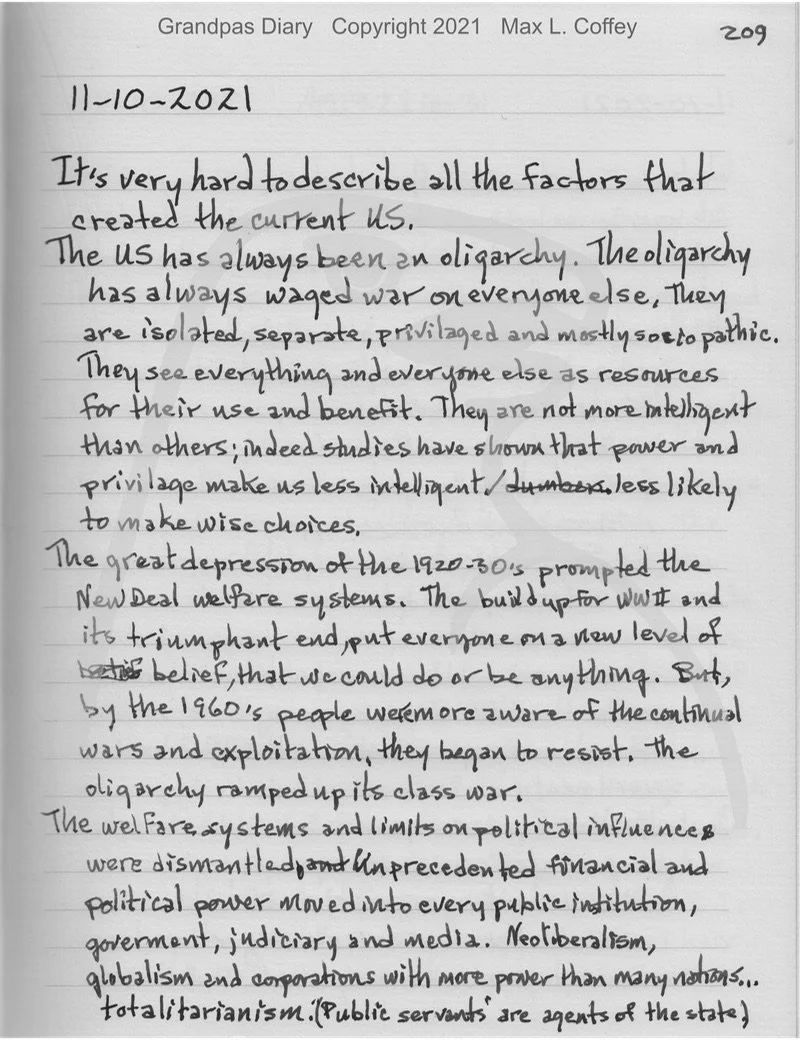 Grandpas Diary Copyright 2021 Max L. Coffey
209
11-10-2021
It's very hard to describe all the factors that
created the current US.
The US has always been an oligarchy. The oligarchy
has always waged war on everyone else, They
are isolated, separate, privilaged and mostly sociopathic.
They see everything and everyone else as resources
for their use and benefit. They are not more intelligent
than others; indeed studies have shown that power and
privilage make us less intelligent / dumber. less likely
to make wise choices.
The great depression of the 1920-30's prompted the
New Deal welfare systems. The build up for WWII and
its triumphant end, put everyone on a new level of
belief, that we could do or be anything. But,
by the 1960's people were more aware of the continual
wars and exploitation, they began to resist. The
oligarchy ramped up its class war.
The welfare systems and limits on political influences
were dismantled, and Unprecedented financial and
political power moved into every public institution,
goverment, judiciary and media. Neoliberalism,
globalism and corporations with more power than many nations...
totalitarianism. (Public servants' are agents of the state)